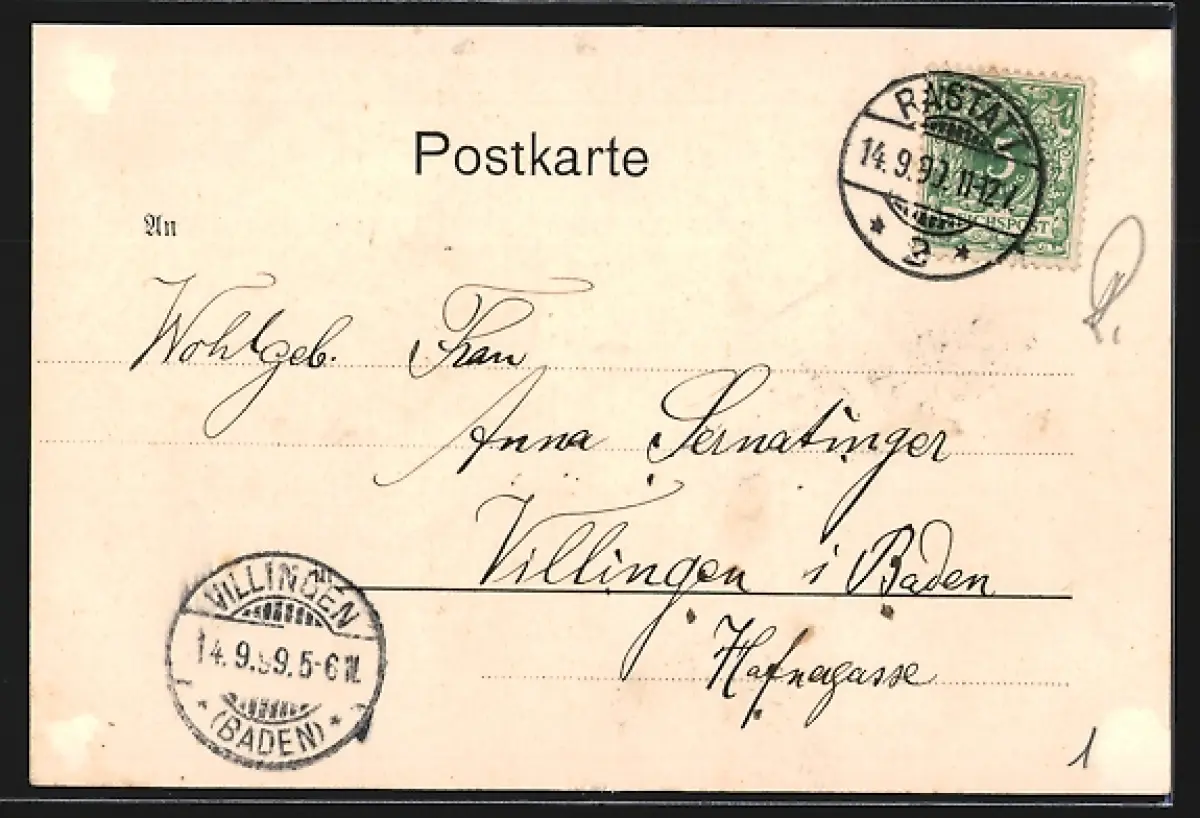 Postkarte
RASTATT
14.9.99.11-12V.
* 2 *
5
REICHSPOST
An
Wohlgeb. Frau
Anna Sernatinger
Villingen i Baden
Hafnagasse
VILLINGEN
14.9.99.5-6N.
* (BADEN) *
1